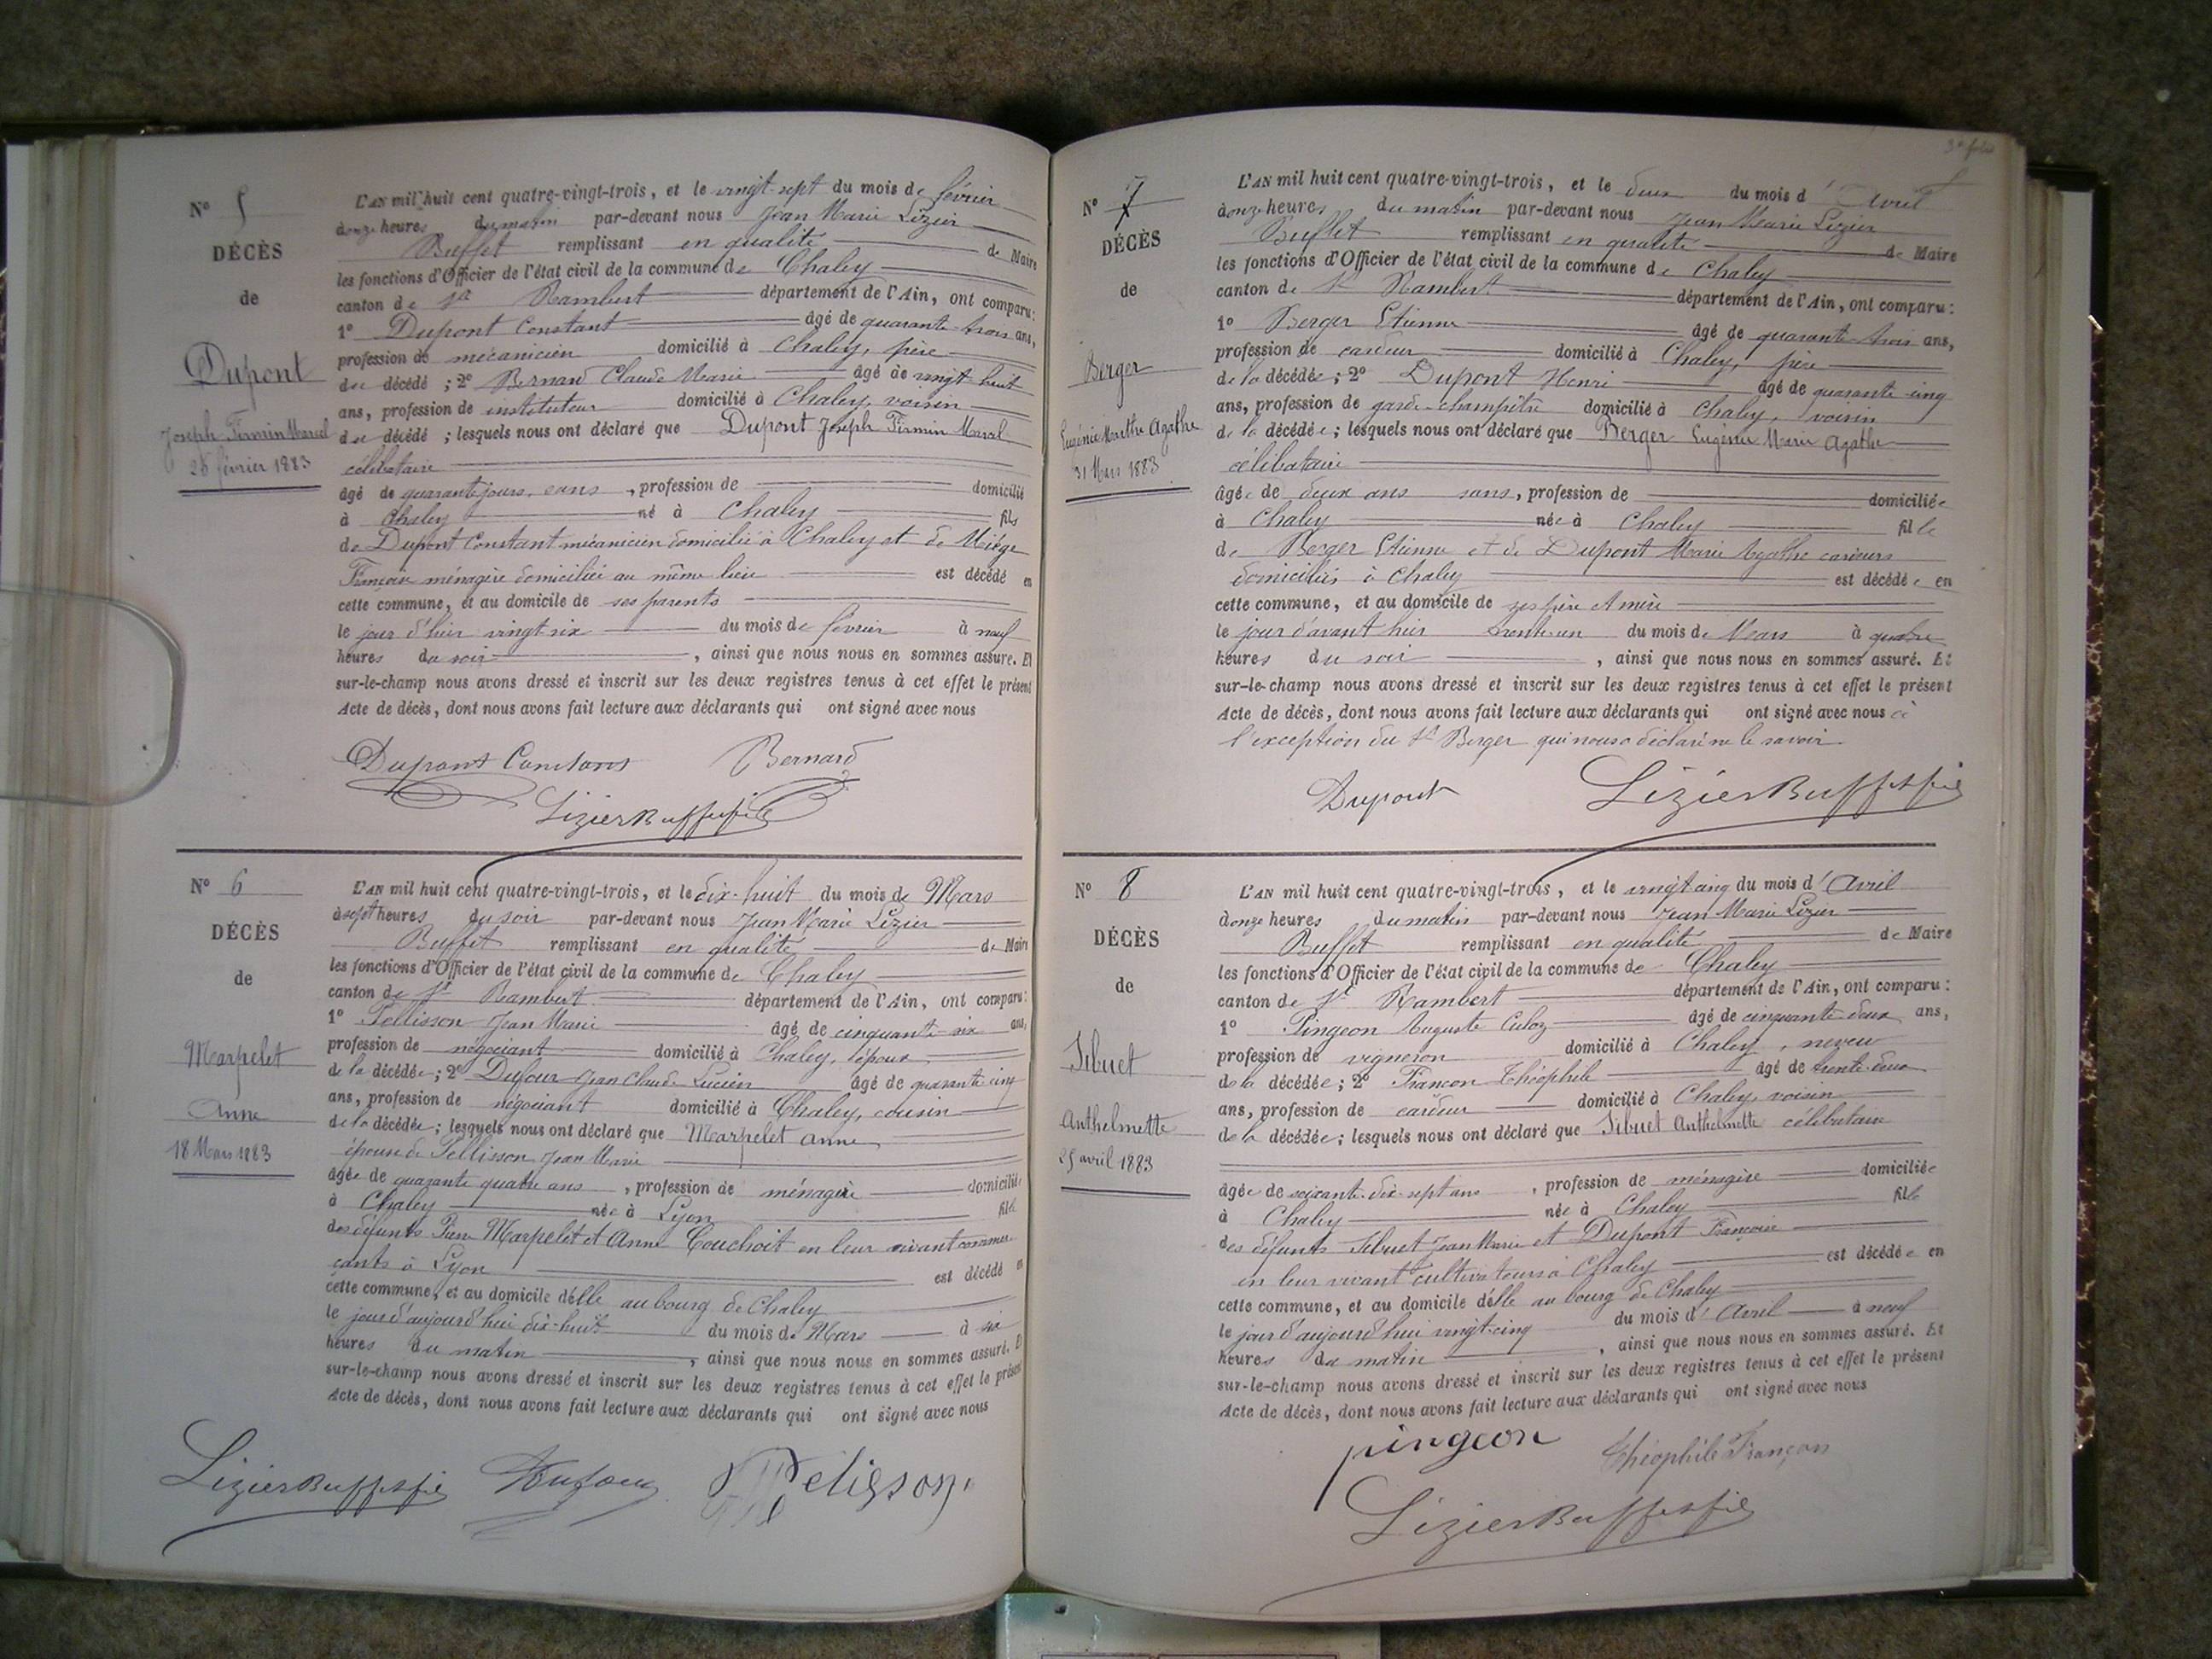 N° 5
DÉCÈS
de
Dupont
Joseph Firmin Marcel
26 février 1883
L'AN mil huit cent quatre-vingt-trois, et le vingt-sept du mois de février
heures du matin par-devant nous Jean Marie Lizier
Buffet remplissant en qualité de Maire
les fonctions d'Officier de l'état civil de la commune de Chaley
canton de St Rambert département de l'Ain, ont comparu:
1° Dupont Constant âgé de quarante-trois ans,
profession de mécanicien domicilié à Chaley, père
du décédé; 2° Bernard Claude Marie âgé de vingt-huit
ans, profession de instituteur domicilié à Chaley, voisin
du décédé; lesquels nous ont déclaré que Dupont Joseph Firmin Marcel
célibataire
âgé de quarante jours, sans, profession de domicilié
à Chaley né à Chaley fils
de Dupont Constant mécanicien domicilié à Chaley et de Miége
Françoise ménagère domiciliée au même lieu est décédé en
cette commune, et au domicile de ses parents
le jour d'hier vingt six du mois de février à neuf
heures du soir, ainsi que nous nous en sommes assuré. Et
sur-le-champ nous avons dressé et inscrit sur les deux registres tenus à cet effet le présent
Acte de décès, dont nous avons fait lecture aux déclarants qui ont signé avec nous
Dupont Constant Bernard
Lizier Buffet fils
N° 6
DÉCÈS
de
Marpelet
Anne
18 Mars 1883
L'AN mil huit cent quatre-vingt-trois, et le dix-huit du mois de Mars
à sept heures du soir par-devant nous Jean Marie Lizier
Buffet remplissant en qualité de Maire
les fonctions d'Officier de l'état civil de la commune de Chaley
canton de St Rambert département de l'Ain, ont comparu:
1° Pellisson Jean Marie âgé de cinquante-six ans,
profession de négociant domicilié à Chaley, époux
de la décédée; 2° Dufour Jean Claude Lucien âgé de quarante cinq
ans, profession de négociant domicilié à Chaley, cousin
de la décédée; lesquels nous ont déclaré que Marpelet Anne
épouse de Pellisson Jean Marie
âgée de quarante quatre ans, profession de ménagère domiciliée
à Chaley née à Lyon fille
des défunts Marpelet et Anne Couchoit en leur vivant commer
çants à Lyon est décédé en
cette commune, et au domicile d'elle au bourg de Chaley
le jour d'aujourd'hui dix-huit du mois de Mars à six
heures du matin, ainsi que nous nous en sommes assuré. Et
sur-le-champ nous avons dressé et inscrit sur les deux registres tenus à cet effet le présent
Acte de décès, dont nous avons fait lecture aux déclarants qui ont signé avec nous
Lizier Buffet fils Dufour Pelisson
3e folio
N° 7
DÉCÈS
de
Berger
Eugénie Marthe Agathe
31 Mars 1883
L'AN mil huit cent quatre-vingt-trois, et le deux du mois d'Avril
à onze heures du matin par-devant nous Jean Marie Lizier
Buffet remplissant en qualité de Maire
les fonctions d'Officier de l'état civil de la commune de Chaley
canton de St Rambert département de l'Ain, ont comparu:
1° Berger Etienne âgé de quarante-trois ans,
profession de cardeur domicilié à Chaley, père
de la décédée; 2° Dupont Henri âgé de quarante cinq
ans, profession de garde-champêtre domicilié à Chaley, voisin
de la décédée; lesquels nous ont déclaré que Berger Eugénie Marie Agathe
célibataire
âgée de deux ans sans, profession de domiciliée
à Chaley née à Chaley fille
de Berger Etienne et de Dupont Marie Agathe cardeurs
domiciliés à Chaley est décédée en
cette commune, et au domicile de ses père et mère
le jour d'avant hier trente-un du mois de Mars à quatre
heures du soir, ainsi que nous nous en sommes assuré. Et
sur-le-champ nous avons dressé et inscrit sur les deux registres tenus à cet effet le présent
Acte de décès, dont nous avons fait lecture aux déclarants qui ont signé avec nous à
l'exception du Sr Berger qui nous a déclaré ne le savoir
Dupont Lizier Buffet fils
N° 8
DÉCÈS
de
Sibuet
Anthelmette
25 avril 1883
L'AN mil huit cent quatre-vingt-trois, et le vingt cinq du mois d'Avril
à onze heures du matin par-devant nous Jean Marie Lizier
Buffet remplissant en qualité de Maire
les fonctions d'Officier de l'état civil de la commune de Chaley
canton de St Rambert département de l'Ain, ont comparu:
1° Pingeon Auguste Culoz âgé de cinquante-deux ans,
profession de vigneron domicilié à Chaley, neveu
de la décédée; 2° Françon Théophile âgé de trente-deux
ans, profession de cardeur domicilié à Chaley, voisin
de la décédée; lesquels nous ont déclaré que Sibuet Anthelmette célibataire
âgée de soixante-dix-sept ans, profession de ménagère domiciliée
à Chaley née à Chaley fille
des défunts Sibuet Jean Marie et Dupont Françoise
en leur vivant cultivateurs à Chaley est décédée en
cette commune, et au domicile d'elle au bourg de Chaley
le jour d'aujourd'hui vingt-cinq du mois d'Avril à neuf
heures du matin, ainsi que nous nous en sommes assuré. Et
sur-le-champ nous avons dressé et inscrit sur les deux registres tenus à cet effet le présent
Acte de décès, dont nous avons fait lecture aux déclarants qui ont signé avec nous
pingeon Théophile Françon
Lizier Buffet fils